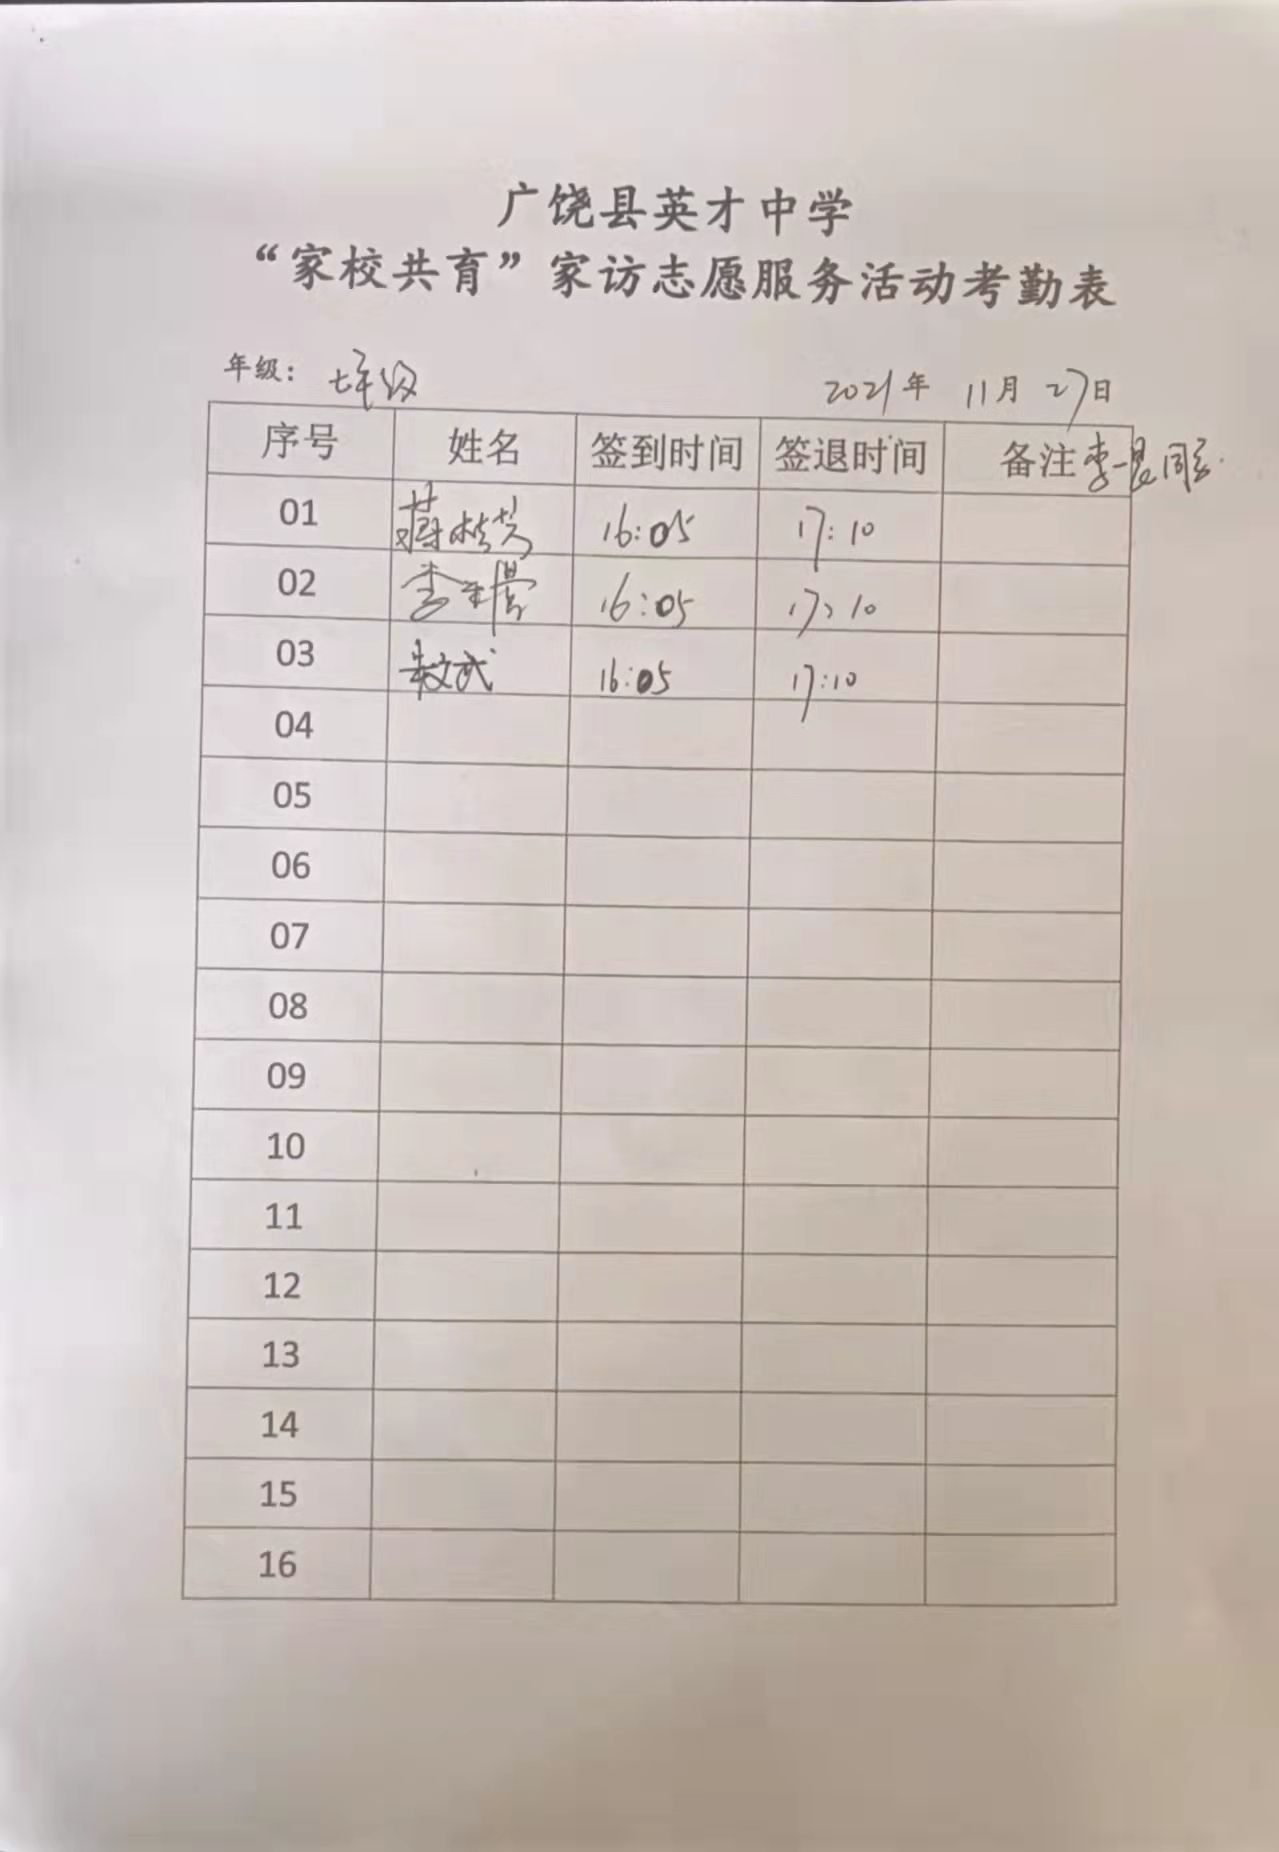 广饶县英才中学
“家校共育”家访志愿服务活动考勤表
年级： 七年级 2021年 11月 27日
序号 姓名 签到时间 签退时间 备注 李一昆
01 16:05 17:10
02 李 16:05 17:10
03 朱文武 16:05 17:10
04
05
06
07
08
09
10
11
12
13
14
15
16